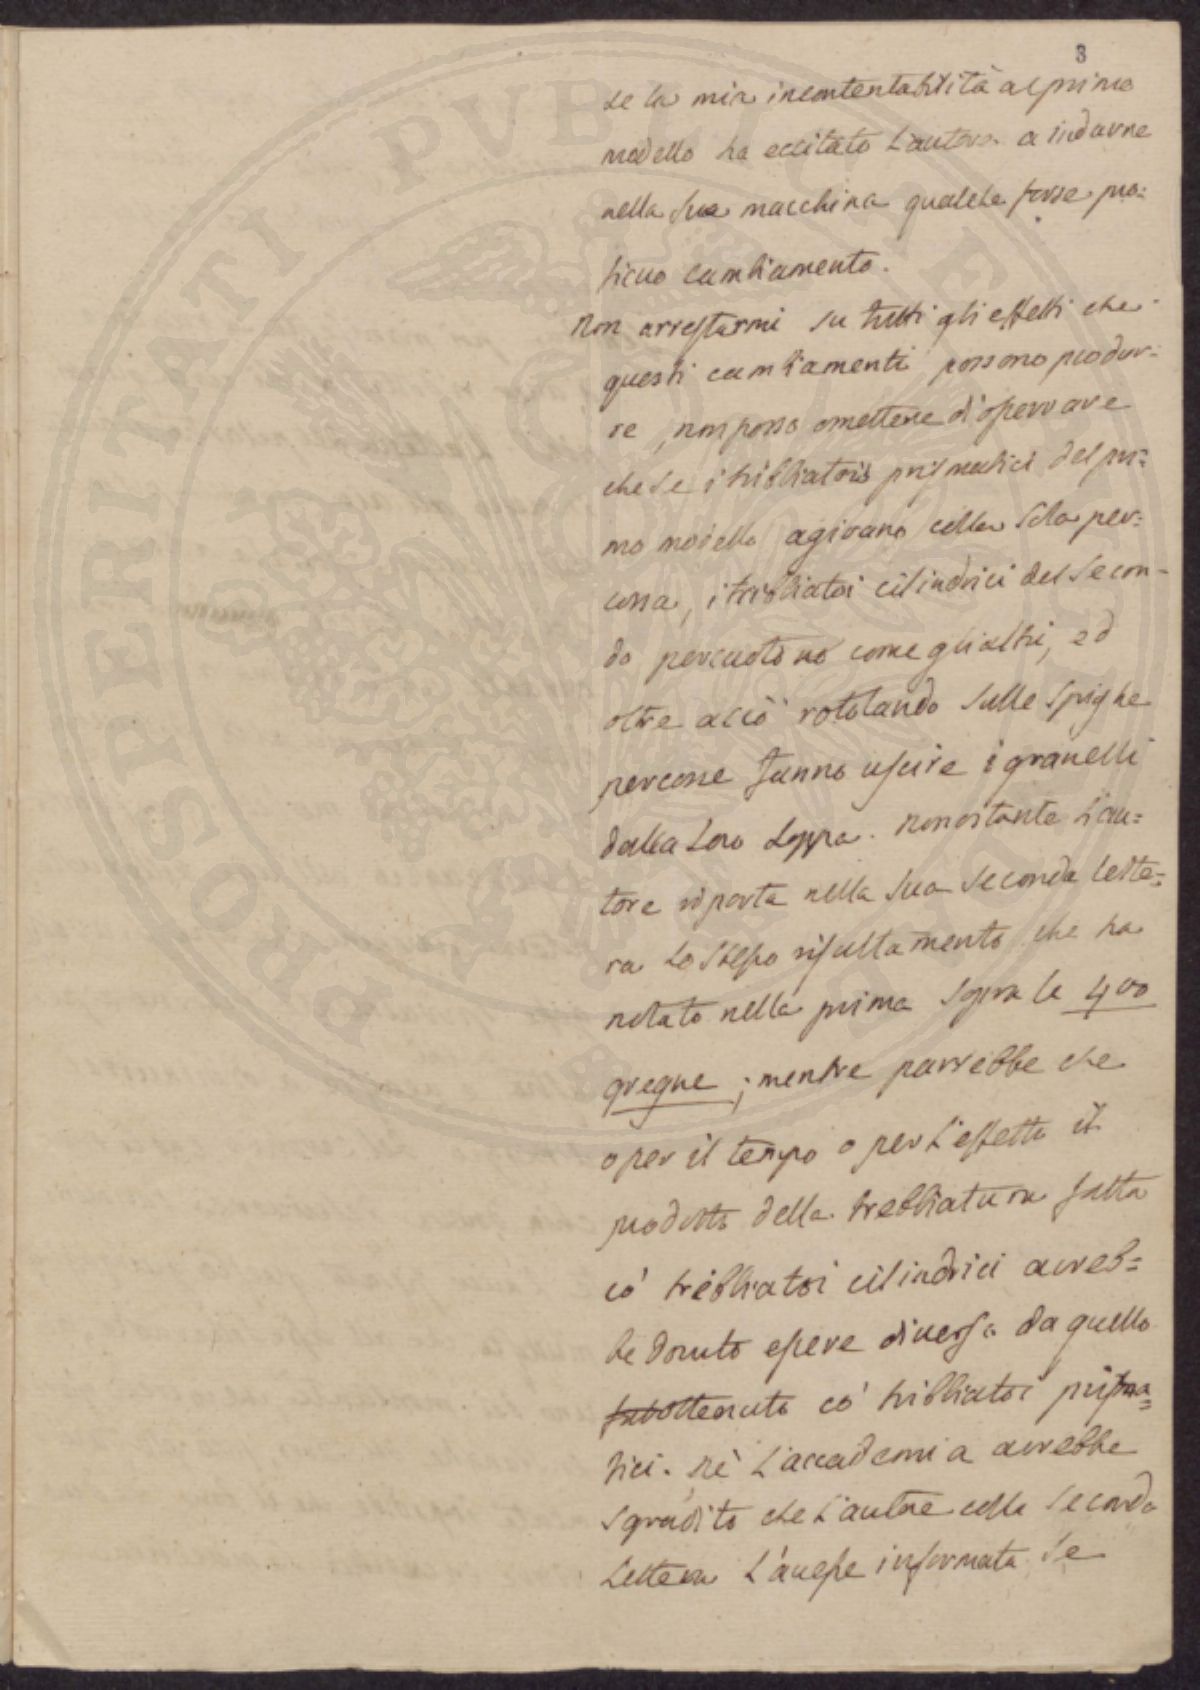 3
se la mia incontentabilità al primo
modello ha eccitato l'autore a indurne
nella sua macchina qualche forse pro=
ficuo cambiamento.
Non arrestarmi su tutti gli effetti che
questi cambiamenti possono produr=
re, non posso omettere di osservare
che se i tribbiatoi prismatici del pri=
mo modello agivano colla sola per=
cossa, i tribbiatoi cilindrici del secon=
do percuotono come gli altri, ed
oltre acciò rotolando sulle spighe
percosse fanno uscire i granelli
dalla loro loppa. nonostante l'au=
tore riporta nella sua seconda lette=
ra lo stesso risultamento che ha
notato nella prima sopra le 400
gregne; mentre parrebbe che
o per il tempo o per l'effetto il
prodotto della trebbiatura fatta
co' trebbiatoi cilindrici avreb=
be dovuto essere diverso da quello
ottenuto co' tribbiatoi prisma=
tici. nè l'accademia avrebbe
sgradito che l'autore colla seconda
lettera l'avesse informata se
PROSPERITATI PVBLICAE AVGENDAE